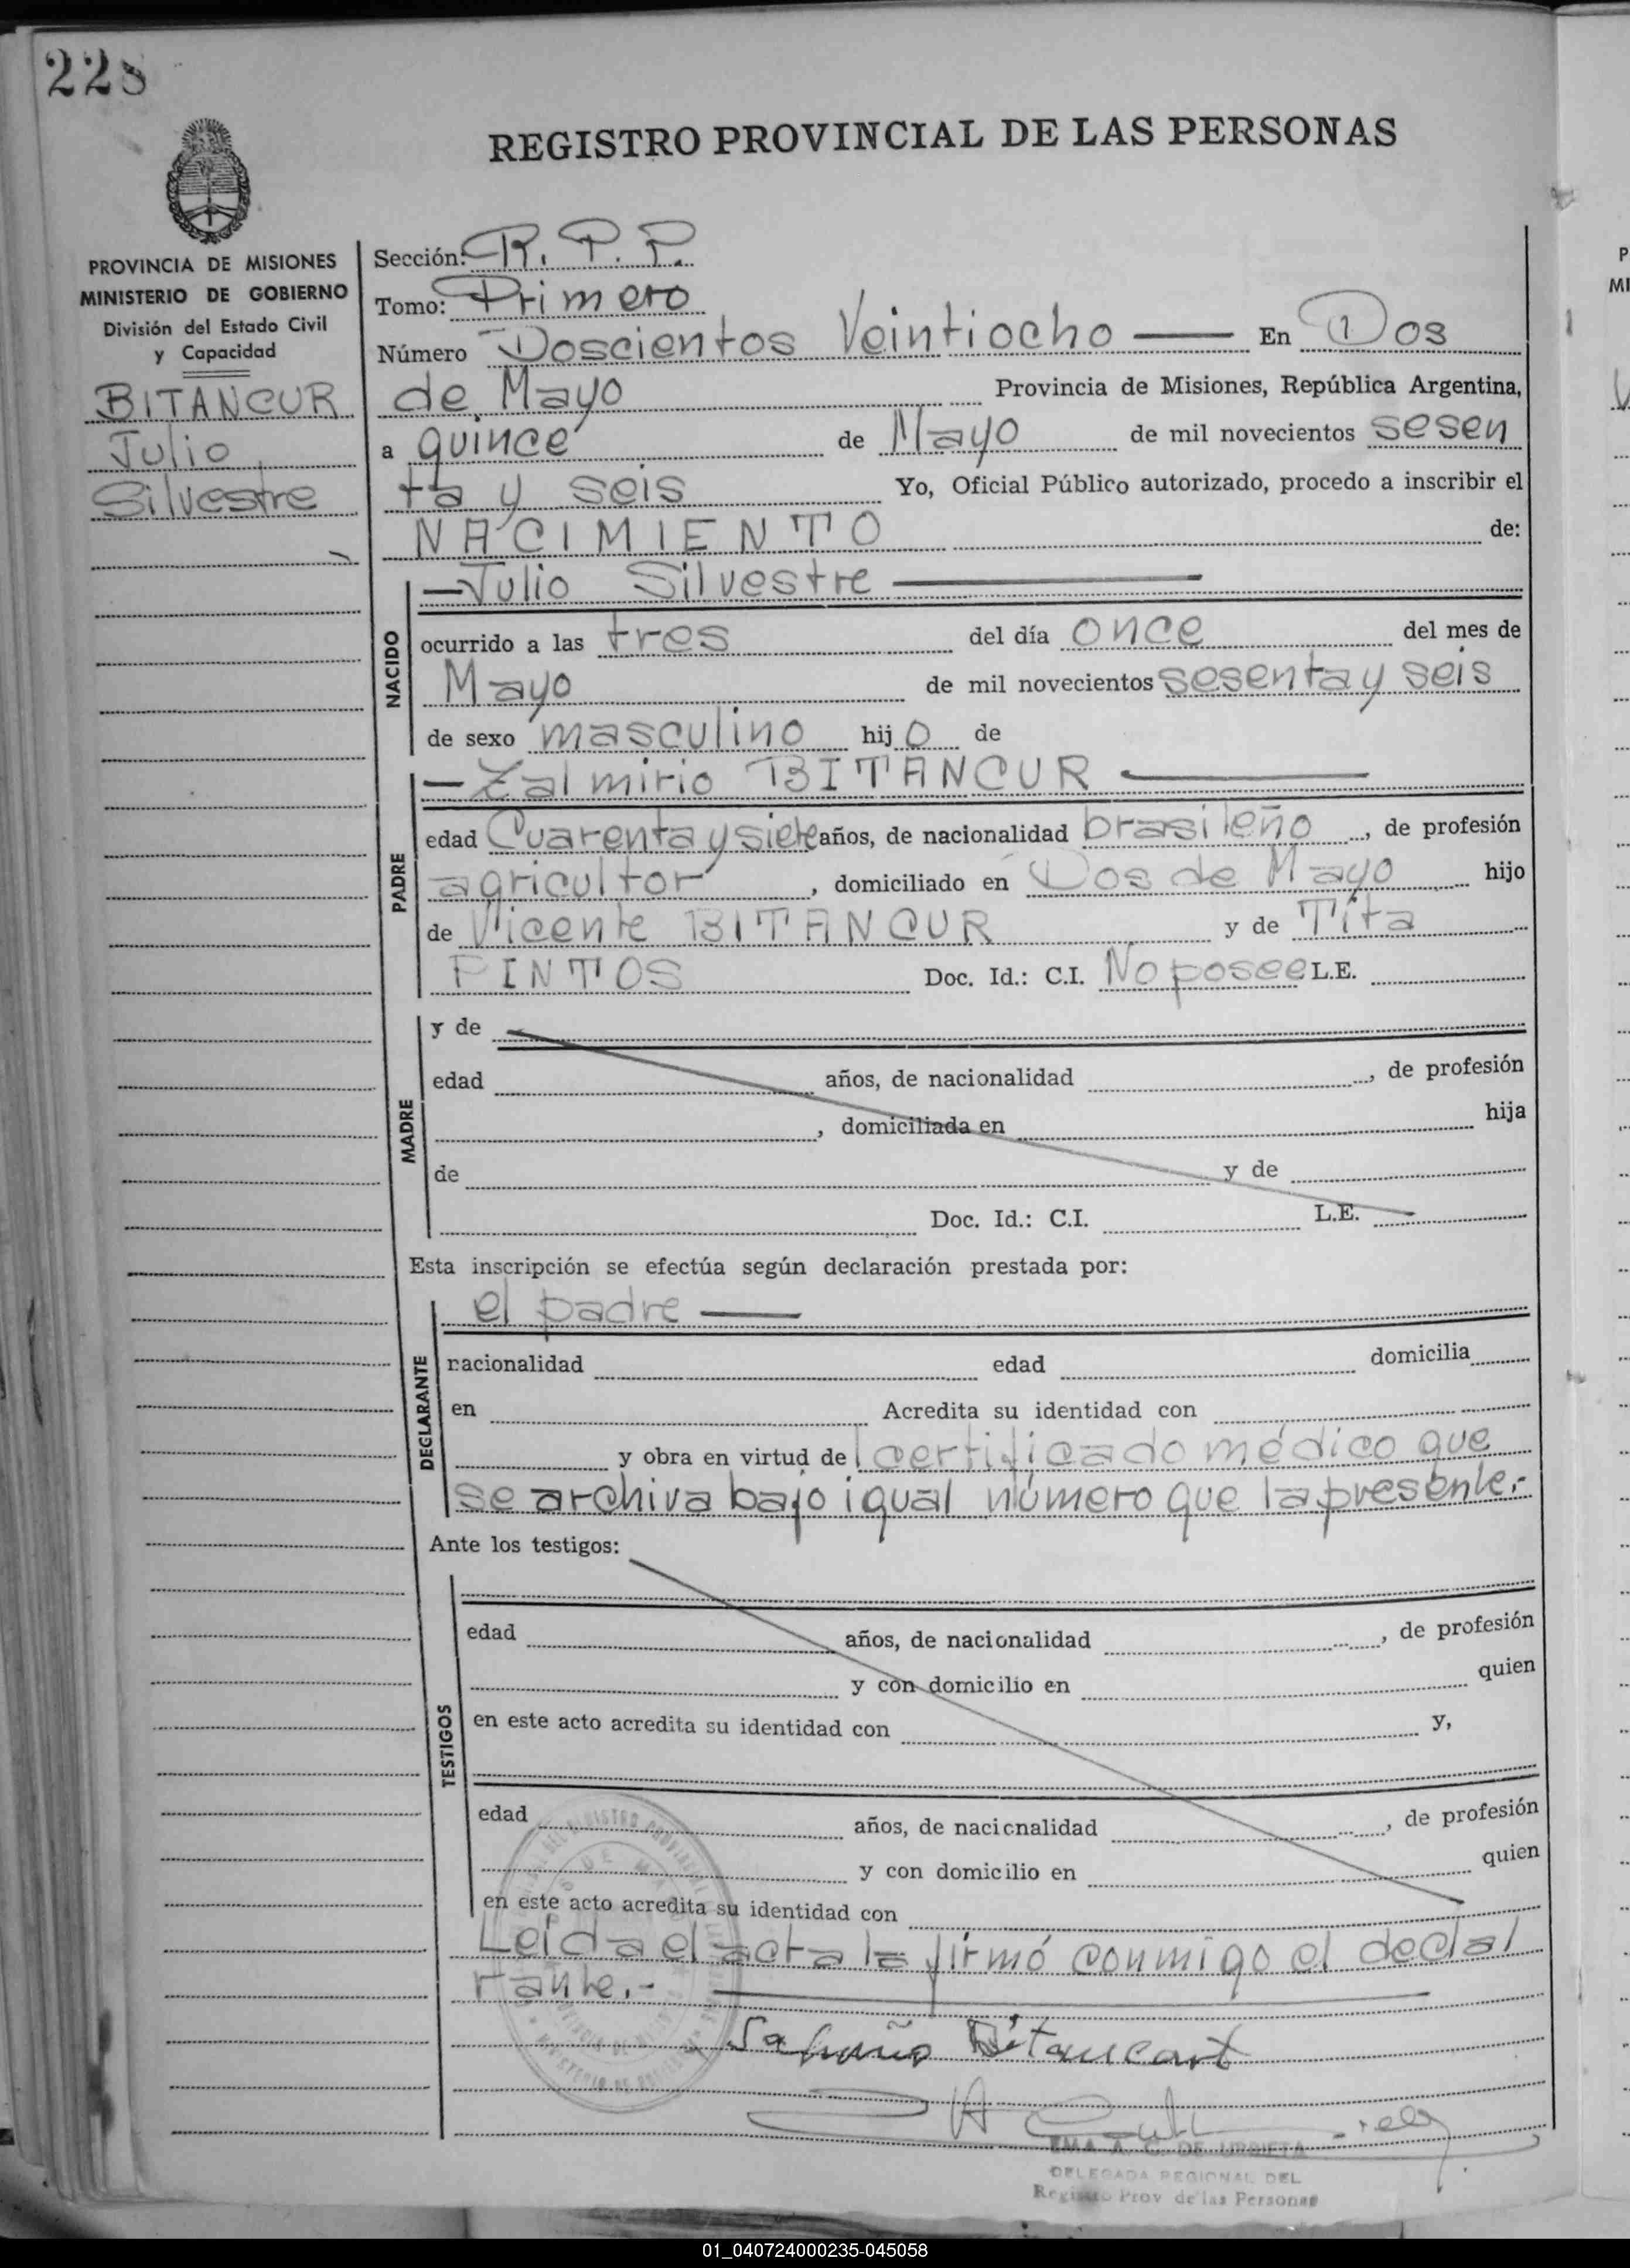 228
REGISTRO PROVINCIAL DE LAS PERSONAS
PROVINCIA DE MISIONES
MINISTERIO DE GOBIERNO
División del Estado Civil
y Capacidad
BITANCUR
Julio
Silvestre
Sección: R. P. P.
Tomo: Primero
Número Doscientos Veintiocho — En Dos
de Mayo Provincia de Misiones, República Argentina,
a quince de Mayo de mil novecientos sesen
ta y seis Yo, Oficial Público autorizado, procedo a inscribir el
NACIMIENTO de:
NACIDO
— Julio Silvestre —
ocurrido a las tres del día once del mes de
Mayo de mil novecientos sesenta y seis
de sexo masculino hijo de
PADRE
— Zalmirio BITANCUR —
edad Cuarenta y siete años, de nacionalidad brasileño, de profesión
agricultor, domiciliado en Dos de Mayo hijo
de Vicente BITANCUR y de Tita
PINTOS Doc. Id.: C.I. No posee L.E.
MADRE
y de
edad años, de nacionalidad , de profesión
, domiciliada en hija
de y de
Doc. Id.: C.I. L.E.
Esta inscripción se efectúa según declaración prestada por:
DECLARANTE
el padre —
nacionalidad edad domicilia
en Acredita su identidad con
y obra en virtud de certificado médico que
se archiva bajo igual número que la presente.-
Ante los testigos:
TESTIGOS
edad años, de nacionalidad , de profesión
y con domicilio en quien
en este acto acredita su identidad con y,
edad años, de nacionalidad , de profesión
y con domicilio en quien
en este acto acredita su identidad con
Leída el acta la firmó conmigo el decla
rante.-
EMA A. C. DE URBIETA
DELEGADA REGIONAL DEL
Registro Prov de las Personas
01_040724000235-045058